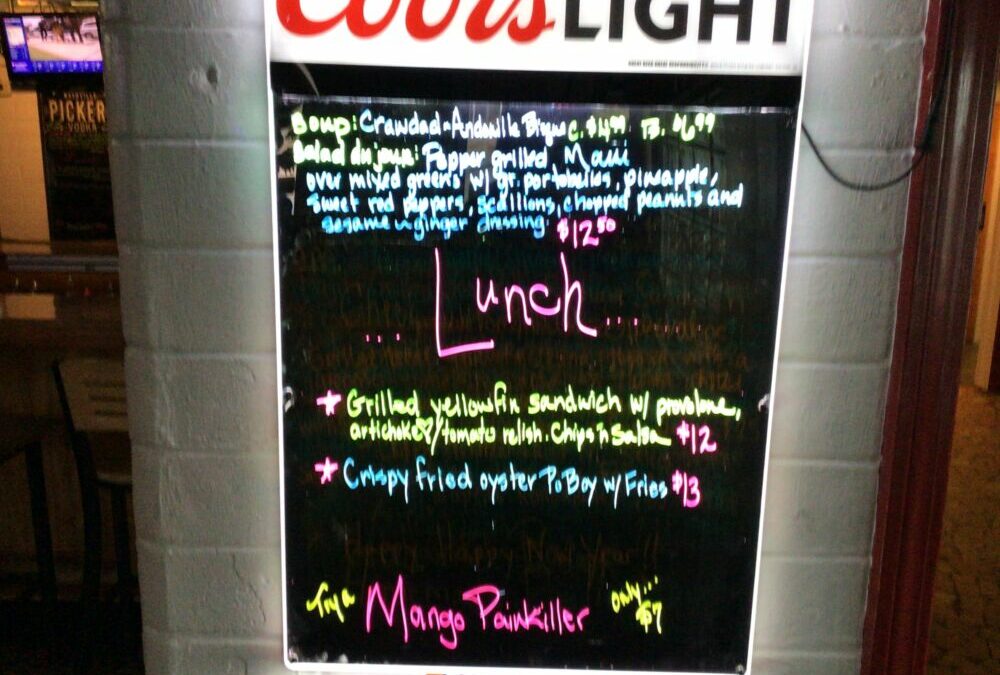 Coors LIGHT
PICKER
VODKA
Soup: Crawdad-Andouille Bisque c. $4.99 B. $6.99
Salad du jour: Pepper grilled Maui
over mixed greens w/ gr. portobellos, pineapple,
sweet red peppers, scallions, chopped peanuts and
sesame ginger dressing. $12.50
... Lunch ...
* Grilled yellowfin sandwich w/ provolone,
artichoke/tomato relish. Chips n Salsa $12
* Crispy fried oyster PoBoy w/ Fries $13
Happy New Year!!
Try a Mango Painkiller only... $7